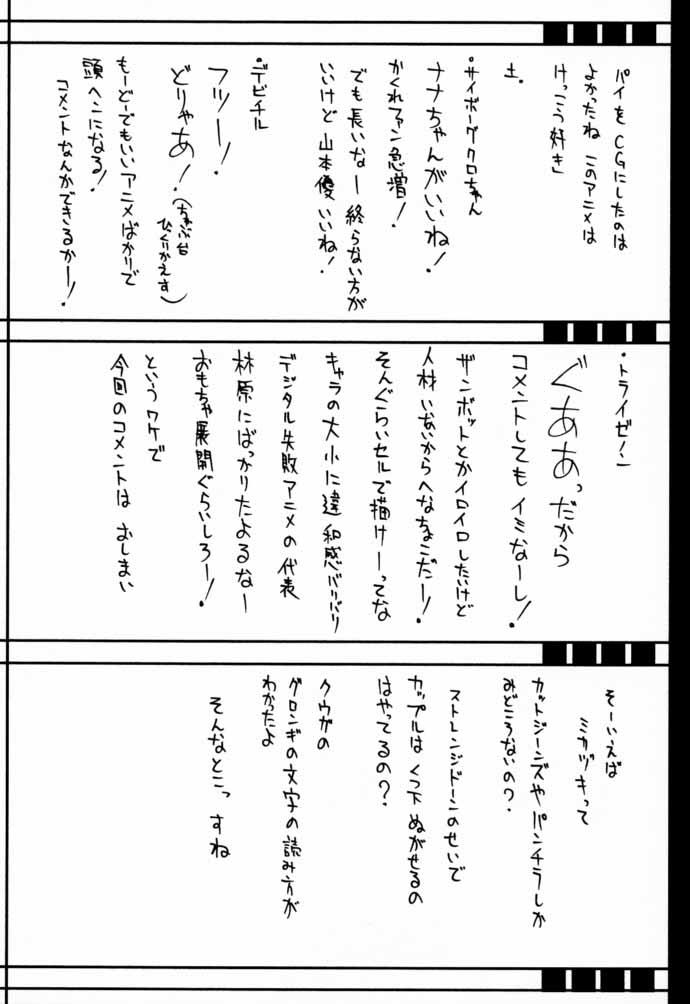 パイを CGにしたのは
よかったね このアニメは
けっこう好き」
土.
・サイボーグクロちゃん
ナナちゃんがいいね!
かくれファン急増!
でも長いなー 終らない方が
いいけど 山本優いいね!
・デビチル
フッー!
どりゃあ!(ちゃぶ台
ひくりかえす)
もーどーでもいいアニメばかりで
頭ヘンになる!
コメントなんかできるかー!
・トライゼノン
ぐああっだから
コメントしても イミなーし!
ザンボットとかイロイロしたいけど
人材いないからへなちょこだー!
そんぐらいセルで描けーってな
キャラの大小に違和感バリバリ
デジタル失敗アニメの代表
林原にばっかりたよるなー
おもちゃ展開ぐらいしろー!
というワケで
今回のコメントは おしまい
そーいえば
ミカヅキって
カットジーンズや パンチラしか
みどころないの?
ストレンジドーンのせいで
カップルは くつ下 ぬがせるの
はやってるの?
クウガの
グロンギの文字の読み方が
わかったよ
そんなとこっ すね